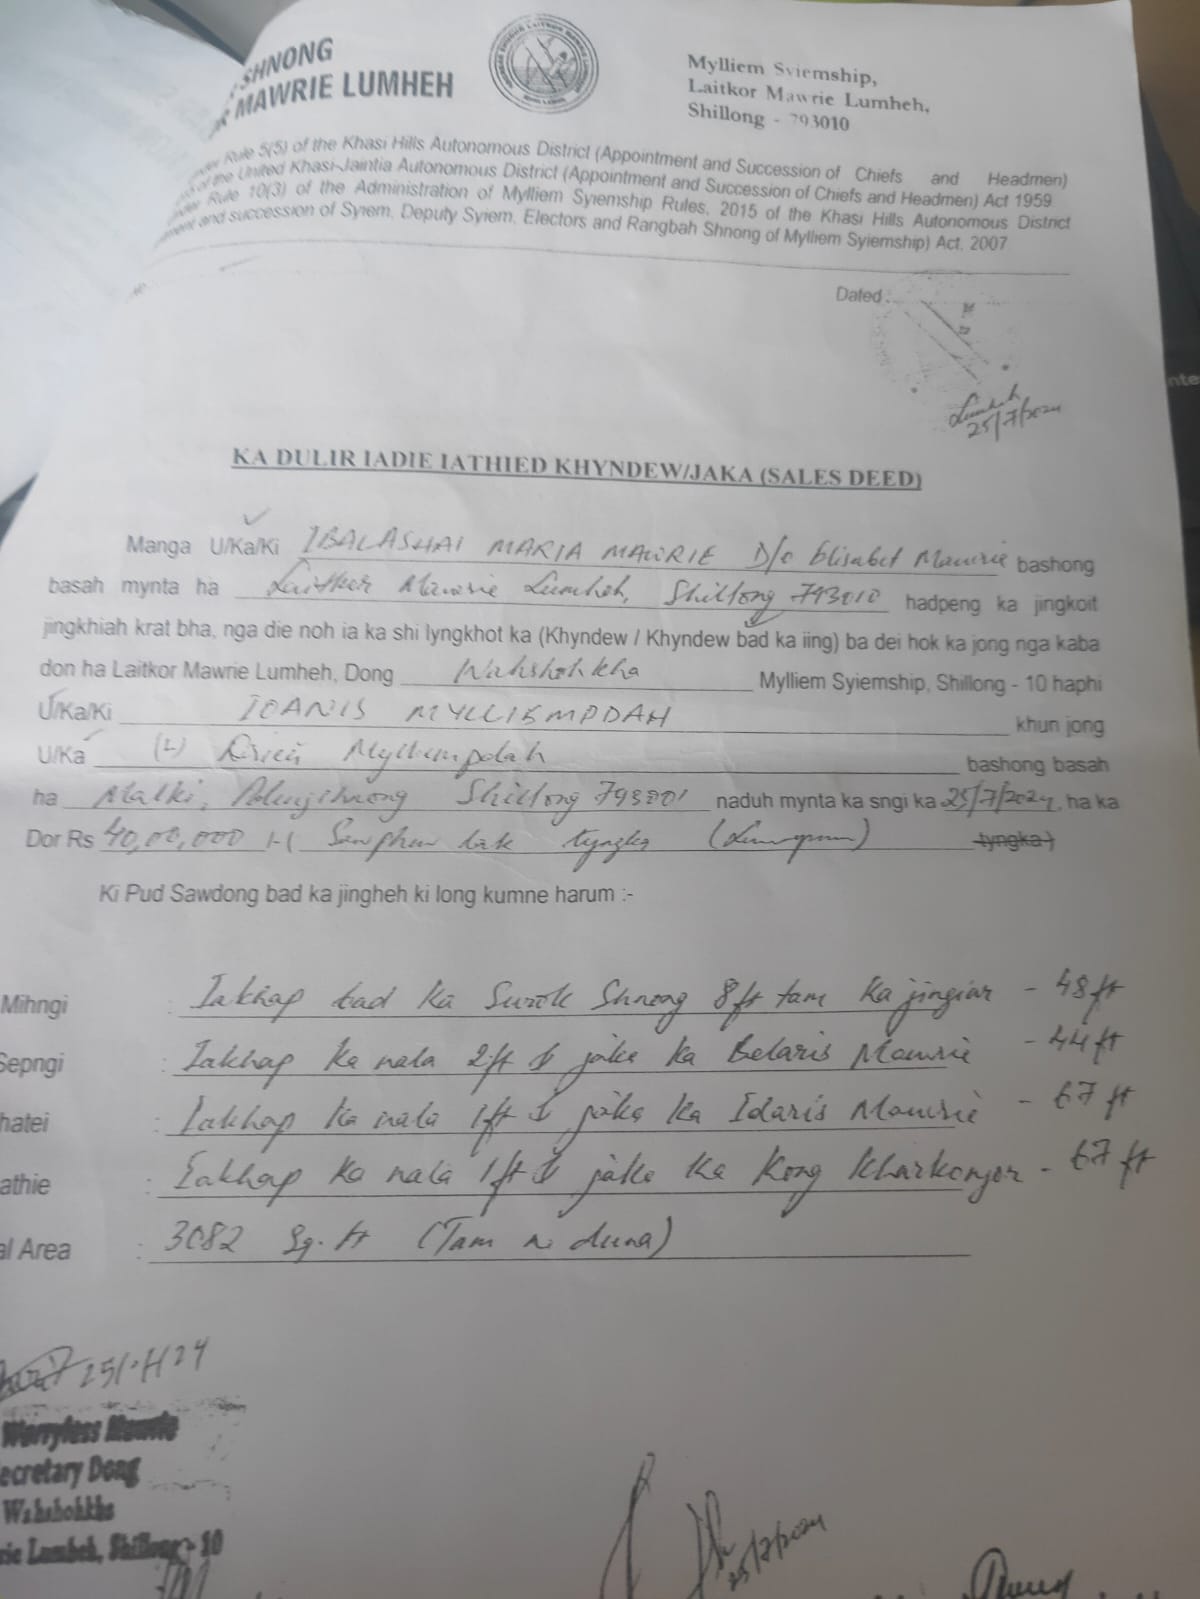 SHNONG
MAWRIE LUMHEH
Mylliem Syiemship,
Laitkor Mawrie Lumheh,
Shillong - 793010
Rule 5(5) of the Khasi Hills Autonomous District (Appointment and Succession of Chiefs and Headmen)
of the United Khasi-Jaintia Autonomous District (Appointment and Succession of Chiefs and Headmen) Act 1959
Rule 10(3) of the Administration of Mylliem Syiemship Rules, 2015 of the Khasi Hills Autonomous District
and succession of Syiem, Deputy Syiem, Electors and Rangbah Shnong of Mylliem Syiemship) Act, 2007
Dated :
Lumheh
25/7/2024
KA DULIR IADIE IATHIED KHYNDEW/JAKA (SALES DEED)
Manga U/Ka/Ki IBALASHAI MARIA MAWRIE D/o Elisabet Mawrie bashong
basah mynta ha Laitkor Mawrie Lumheh, Shillong 793010 hadpeng ka jingkoit
jingkhiah krat bha, nga die noh ia ka shi lyngkhot ka (Khyndew / Khyndew bad ka iing) ba dei hok ka jong nga kaba
don ha Laitkor Mawrie Lumheh, Dong Wahshohkha Mylliem Syiemship, Shillong - 10 haphi
U/Ka/Ki IOANIS MYLLIEMPDAH khun jong
U/Ka (L) Myllempdah bashong basah
ha Malki, Shillong 793001 naduh mynta ka sngi ka 25/7/2024, ha ka
Dor Rs 40,00,000 /-( Sawphew lak tyngka (Lumpum) tyngka)
Ki Pud Sawdong bad ka jingheh ki long kumne harum :-
Mihngi : Iakhap bad ka Surok Shnong 8ft tam ka jingiar - 48 ft
Sepngi : Iakhap ka nala 2ft & jaka ka Belaris Mawrie - 44 ft
hatei : Iakhap ka nala 1ft & jaka ka Idaris Mawrie - 67 ft
athie : Iakhap ka nala 1ft & jaka ka Kong Kharkongor - 67 ft
al Area : 3082 Sq. ft (Tam ne duna)
Worryless Mawrie
ecretary Dong
Wahshohkha
rie Lumheh, Shillong - 10
25/7/2024